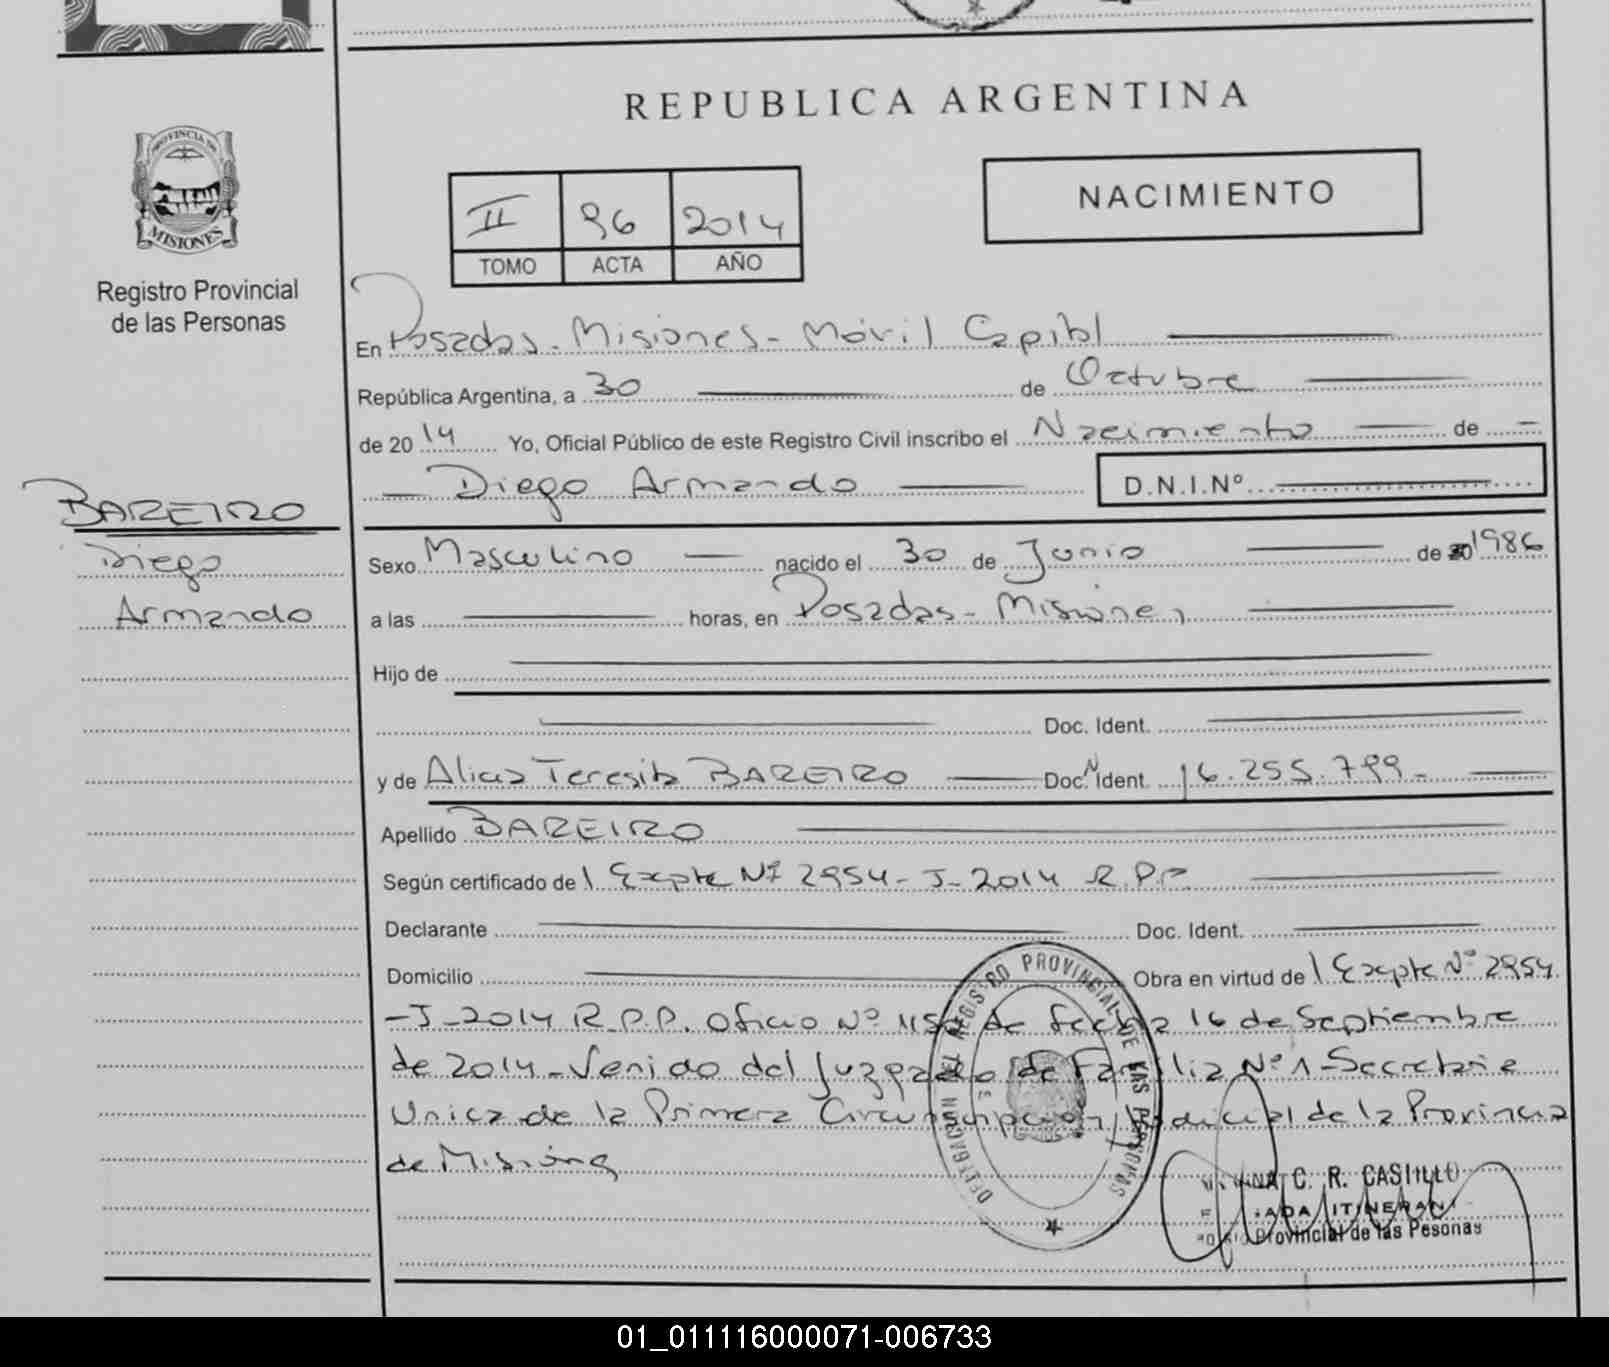 REPUBLICA ARGENTINA
PROVINCIA DE
MISIONES
Registro Provincial
de las Personas
II 96 2014
TOMO ACTA AÑO
NACIMIENTO
En Posadas - Misiones - Móvil Capital
República Argentina, a 30 de Octubre
de 2014 Yo, Oficial Público de este Registro Civil inscribo el Nacimiento de
Diego Armando D.N.I.Nº
BAREIRO
Diego
Armando
Sexo Masculino nacido el 30 de Junio de 1986
a las horas, en Posadas - Misiones
Hijo de
Doc. Ident.
y de Alicia Teresita BAREIRO Doc. N Ident. 16.255.799-
Apellido BAREIRO
Según certificado de Expte Nº 2954 - J - 2014 R.P.P
Declarante Doc. Ident.
Domicilio Obra en virtud de Expte Nº 2954
- J - 2014 R.P.P. Oficio Nº de fecha 16 de Septiembre
de 2014 - Venido del Juzgado de Familia Nº 1 - Secretaria
Unica de la Primera Circunscripción Judicial de la Provincia
de Misiones
DELEGACION DEL REGISTRO PROVINCIAL DE LAS PERSONAS
C. R. CASTILLO
ITINERANT
Provincial de las Pesonas
01_011116000071-006733